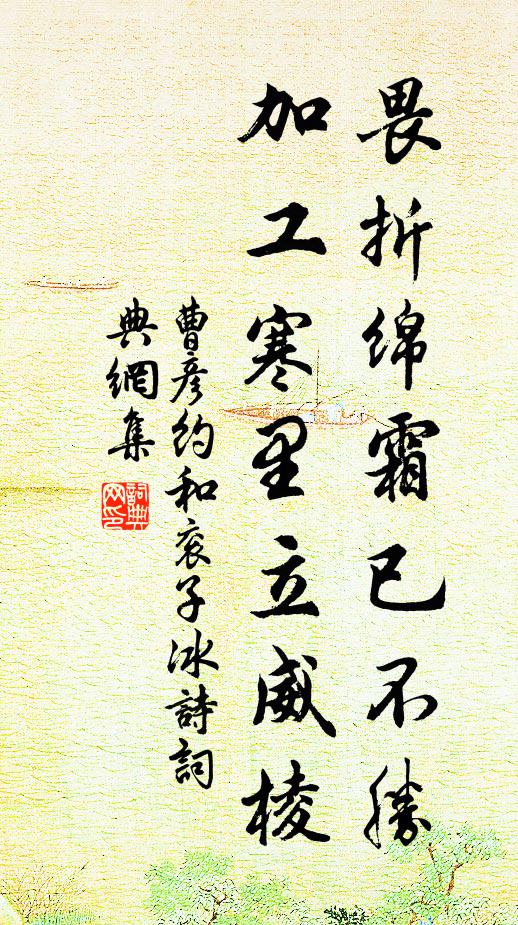 畏折绵霜已不勝
加工寒里立威棱
曹彦约和衮子冰詩詞
典網集
詞典网印